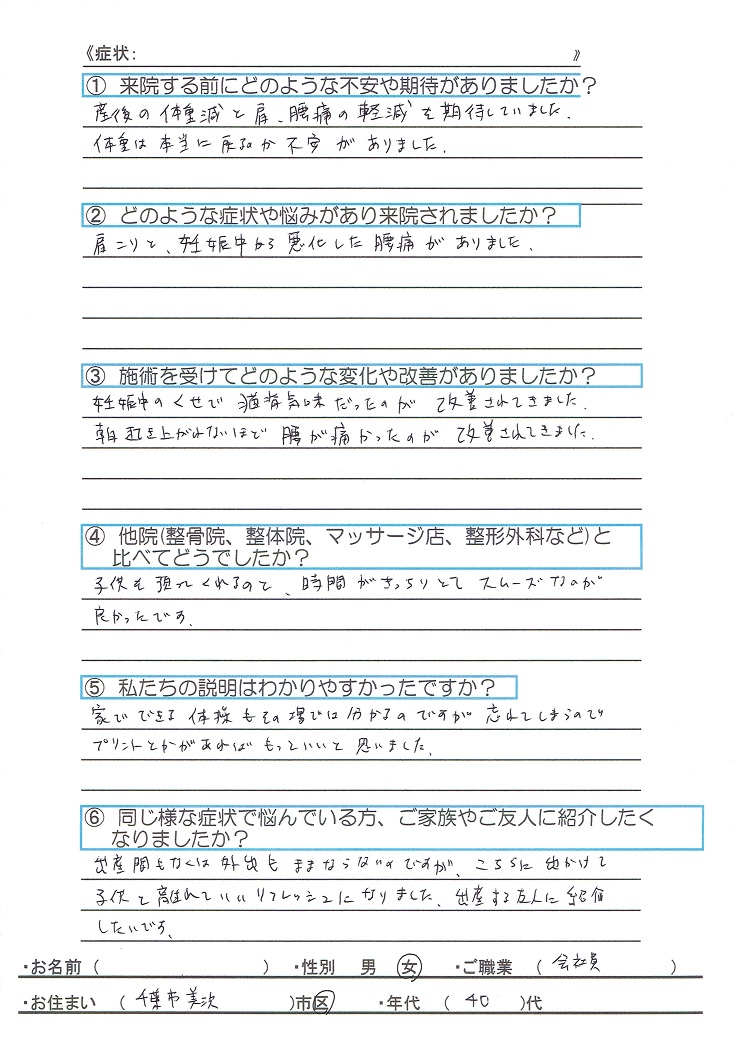 《症状: 》
① 来院する前にどのような不安や期待がありましたか？
産後の体重減と肩、腰痛の軽減を期待していました.
体重は本当に戻るか不安がありました.
② どのような症状や悩みがあり来院されましたか？
肩こりと、妊娠中から悪化した腰痛がありました.
③ 施術を受けてどのような変化や改善がありましたか？
妊娠中のくせで猫背気味だったのが改善されてきました.
朝起き上がれないほど腰が痛かったのが改善されてきました.
④ 他院(整骨院、整体院、マッサージ店、整形外科など)と
比べてどうでしたか？
子供も預ってくれるので、時間がきっちりとてスムーズなのが
良かったです.
⑤ 私たちの説明はわかりやすかったですか？
家でできる体操もその場では分かるのですが忘れてしまうので
プリントとかがあればもっといいと思いました.
⑥ 同じ様な症状で悩んでいる方、ご家族やご友人に紹介したく
なりましたか？
出産間もなくは外出もままならないのですが、こちらに出かけて
子供と離れていいリフレッシュになりました、出産する友人に紹介
したいです、
・お名前 ( ) ・性別 男 女 ・ご職業 ( 会社員 )
・お住まい ( 千葉市美浜 )市区 ・年代 ( 40 )代